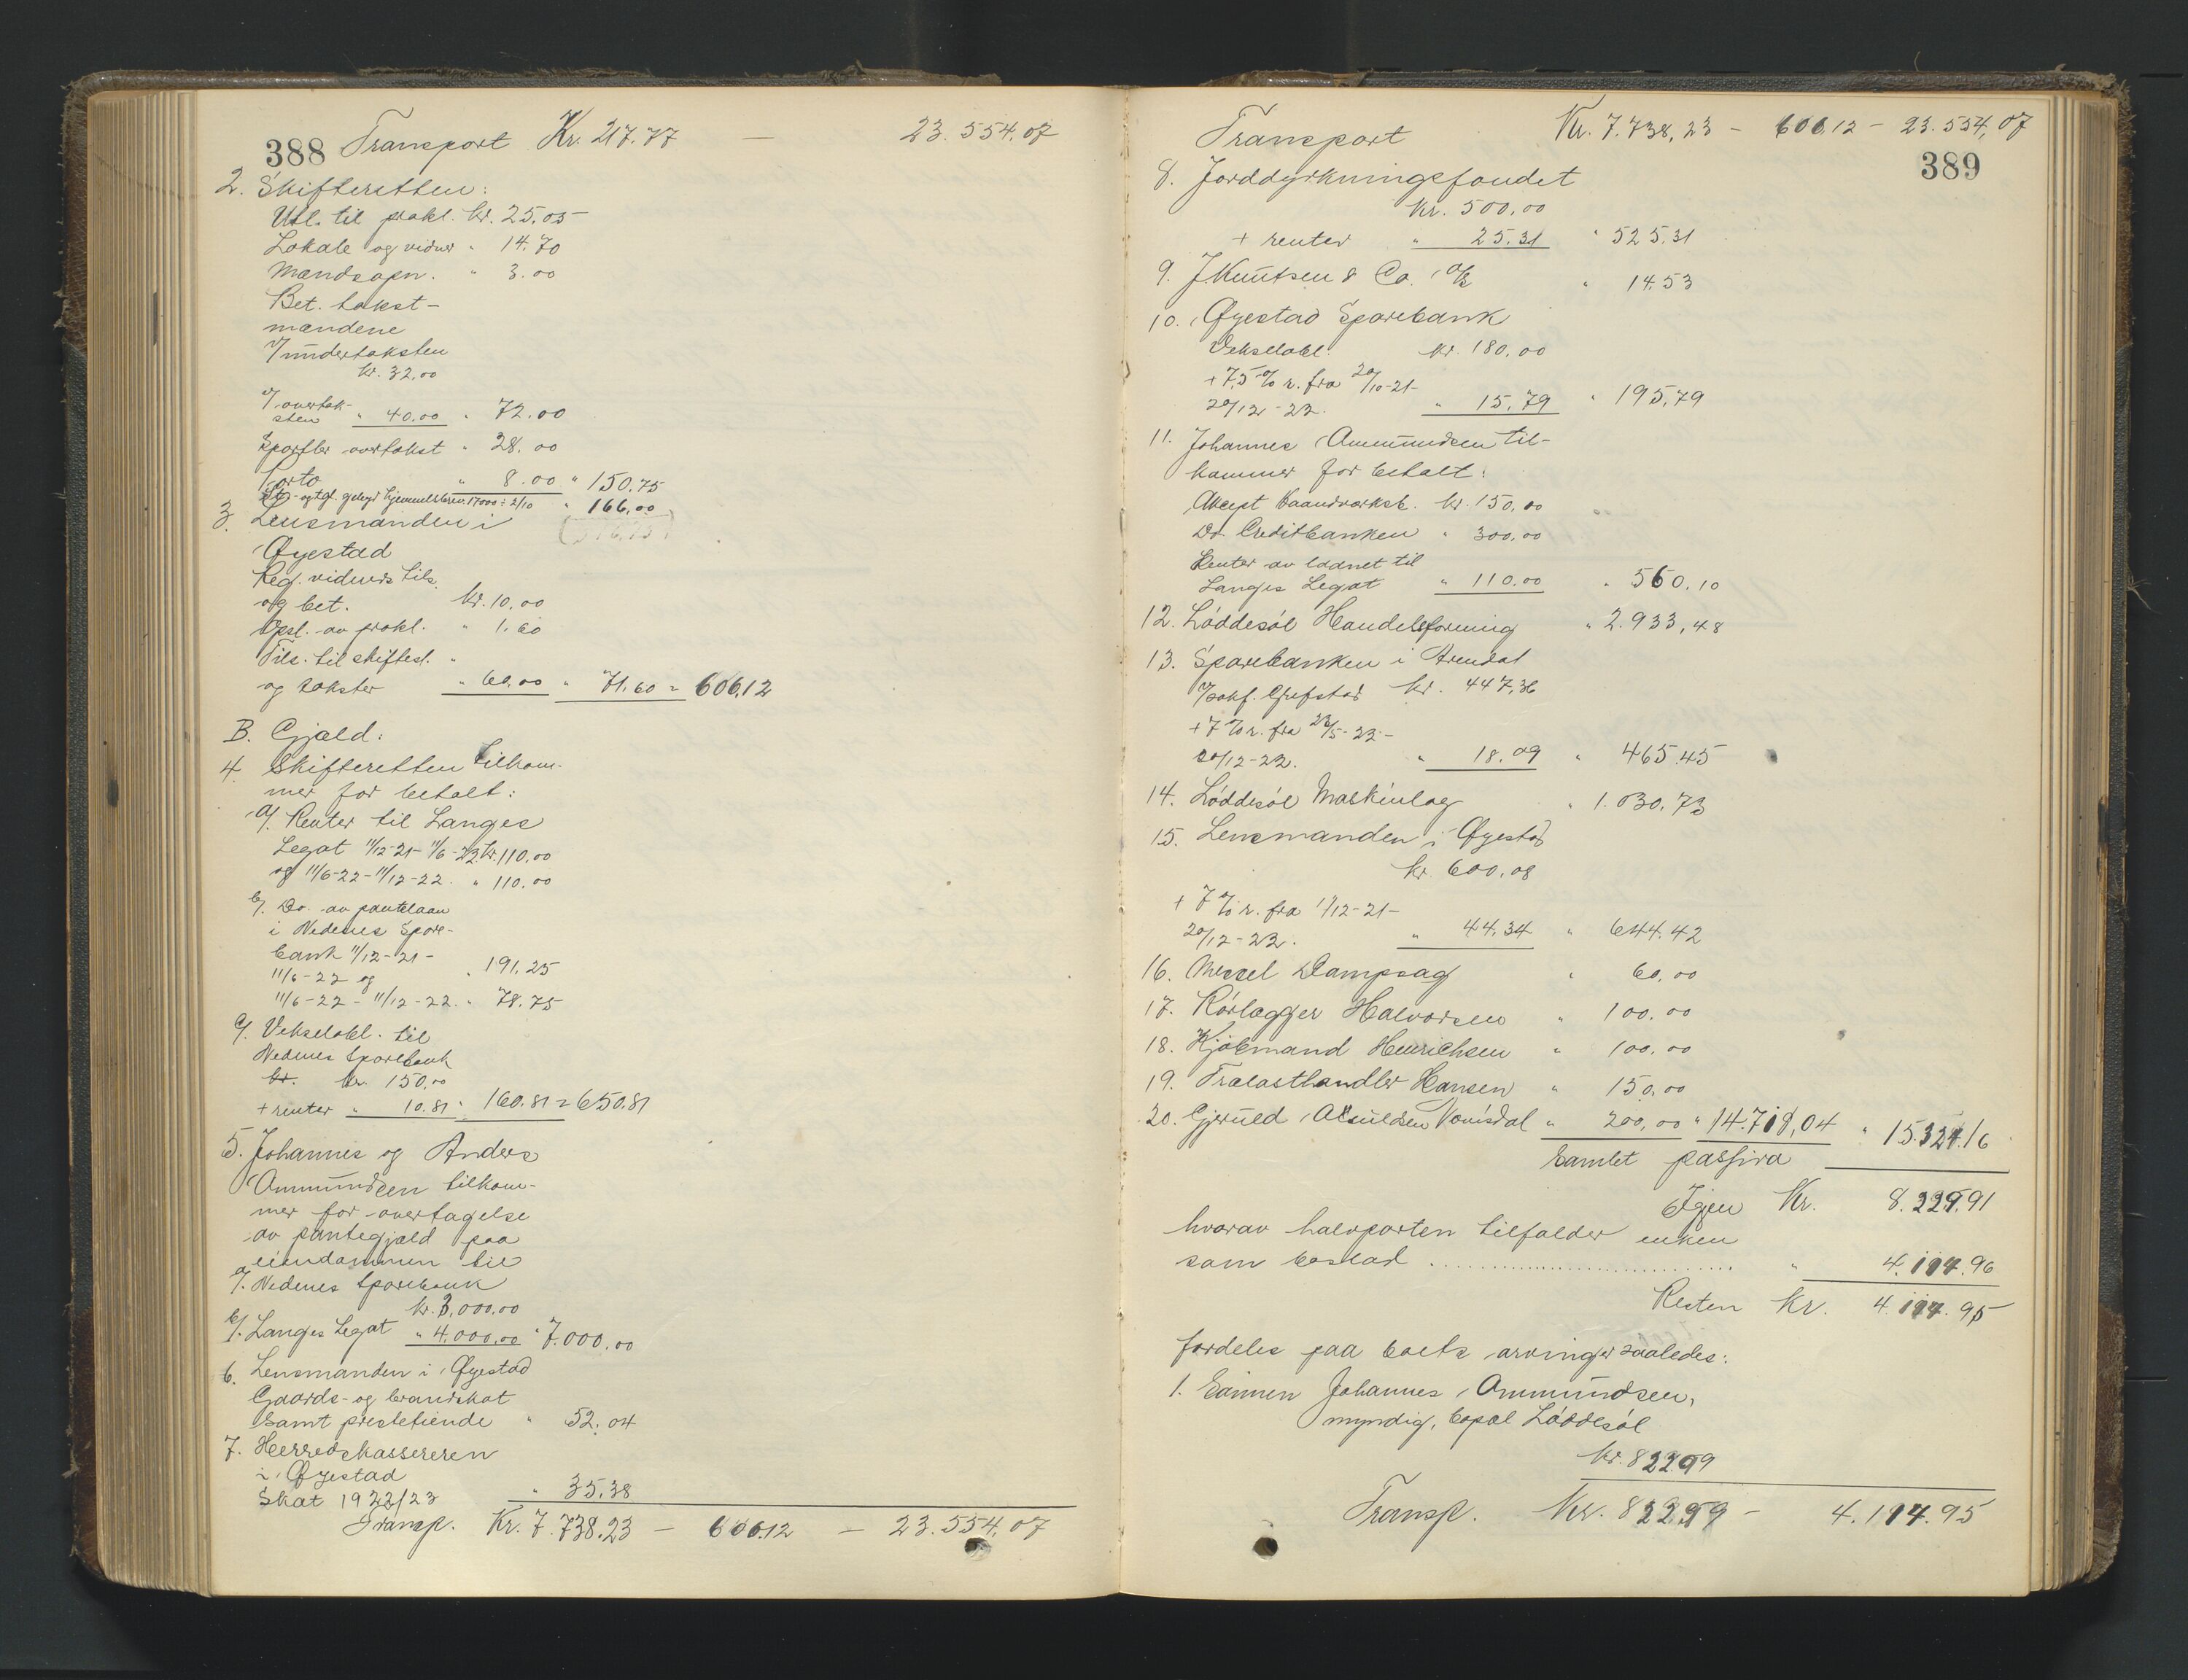 388 Transport Kr. 217.77 — 23.554,07
2. Skifteretten:
Utl. til prokl. kr. 25.05
Lokale og vidner " 14.70
Mandsopn. " 3.00
Bet. takst-
mændene
v/undertaksten
kr. 32,00
v/overtak-
sten " 40.00 " 72.00
Sportler overtakst " 28.00
Porto " 8.00 " 150.75
St.- og tgl. gebyr hjemmelsbrev. 17000 ÷ 2/10 " 166,00
3. Lensmanden i
Øyestad
Reg. vidners tils.
og bet. kr. 10,00
Opsl. av prokl. " 1.60
Tils. til skiftesl. "
og takster " 60,00 " 71.60 = 606,12
B. Gjæld:
4. Skifteretten tilkom-
mer for betalt:
a/. Renter til Langes
Legat 11/12-21 - 11/6-22 kr. 110.00
og 11/6-22 - 11/12-22. " 110.00
b/. Do. av pantelaan
i Nedenes Spare-
bank 11/12-21-
11/6-22 og " 191,25
11/6-22 - 11/12-22. " 78.75
c/. Vekselobl. til
Nedenes Sparebank
kr. kr. 150,00
+ renter " 10.81 " 160.81 = 650.81
5. Johannes og Anders
Ommundsen tilkom-
mer for overtagelse
av pantegjæld paa
eiendommen til
a/. Nedenes Sparebank
kr. 3,000.00
b/. Langes Legat " 4.000,00 " 7.000,00
6. Lensmanden i Øyestad
Gaards- og brandskat
samt prestetiende " 52.04
7. Herredskassereren
i Øyestad
Skat 1922/23 " 35.38
Transp. Kr. 7.738.23 — 606.12 — 23.554,07
Transport Kr. 7.738,23 — 606,12 — 23.554,07
389
8. Jorddyrkningsfondet
kr. 500,00
+ renter " 25.31 " 525.31
9. J. Knutsen & Co. " 14.53
10. Øyestad Sparebank
Vekselobl. kr. 180,00
+ 7,5 % r. fra 20/10-21-
20/12-22. " 15,79 " 195,79
11. Johannes Ommundsen til-
kommer for betalt:
Aksept Haandverksb. kr. 150,00
Do. Creditbanken " 300,00
Renter av laanet til
Langes Legat " 110.00 " 560,10
12. Løddesøl Handelsforening " 2.933,48
13. Sparebanken i Arendal
v/sakf. Grefstad kr. 447,36
+ 7 % r. fra 23/5-22-
20/12-22. " 18.09 " 465.45
14. Løddesøl Maskinlag " 1.030,73
15. Lensmanden i Øyestad
kr. 600,08
+ 7 % r. fra 1/12-21-
20/12-22. " 44,34 " 644.42
16. Messel Dampsag " 60,00
17. Rørlægger Halvorsen " 100,00
18. Kjøbmand Henrichsen " 100,00
19. Trælasthandler Hansen " 150,00
20. Gjeruld Aanuldsen " 200,00 " 14.718,04 " 15.324.16
Samlet passiva
Igjen Kr. 8.229.91
hvorav halvparten tilfalder enken
som boslod .............................. " 4.114.96
Resten kr. 4.114.95
fordeles paa boets arvinger saaledes:
1. Sønnen Johannes Ommundsen,
myndig, bopæl Løddesøl
kr. 822.99
Transp. Kr. 822.99 — 4.114.95